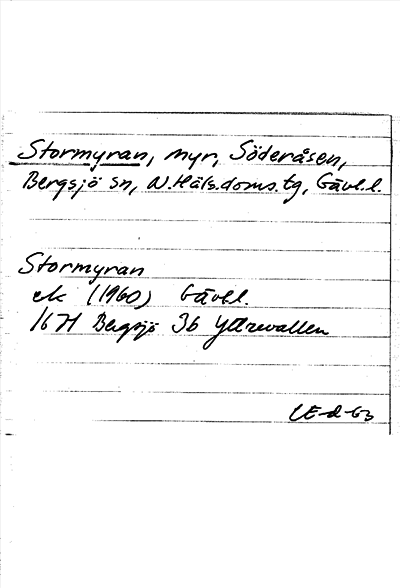 Stormyran, myr, Söderåsen,
Bergsjö sn, N.Häls.doms.tg, Gävl.l.
Stormyran
ek (1960) Gävl.l.
16H Bergsjö 3b Yttrevallen